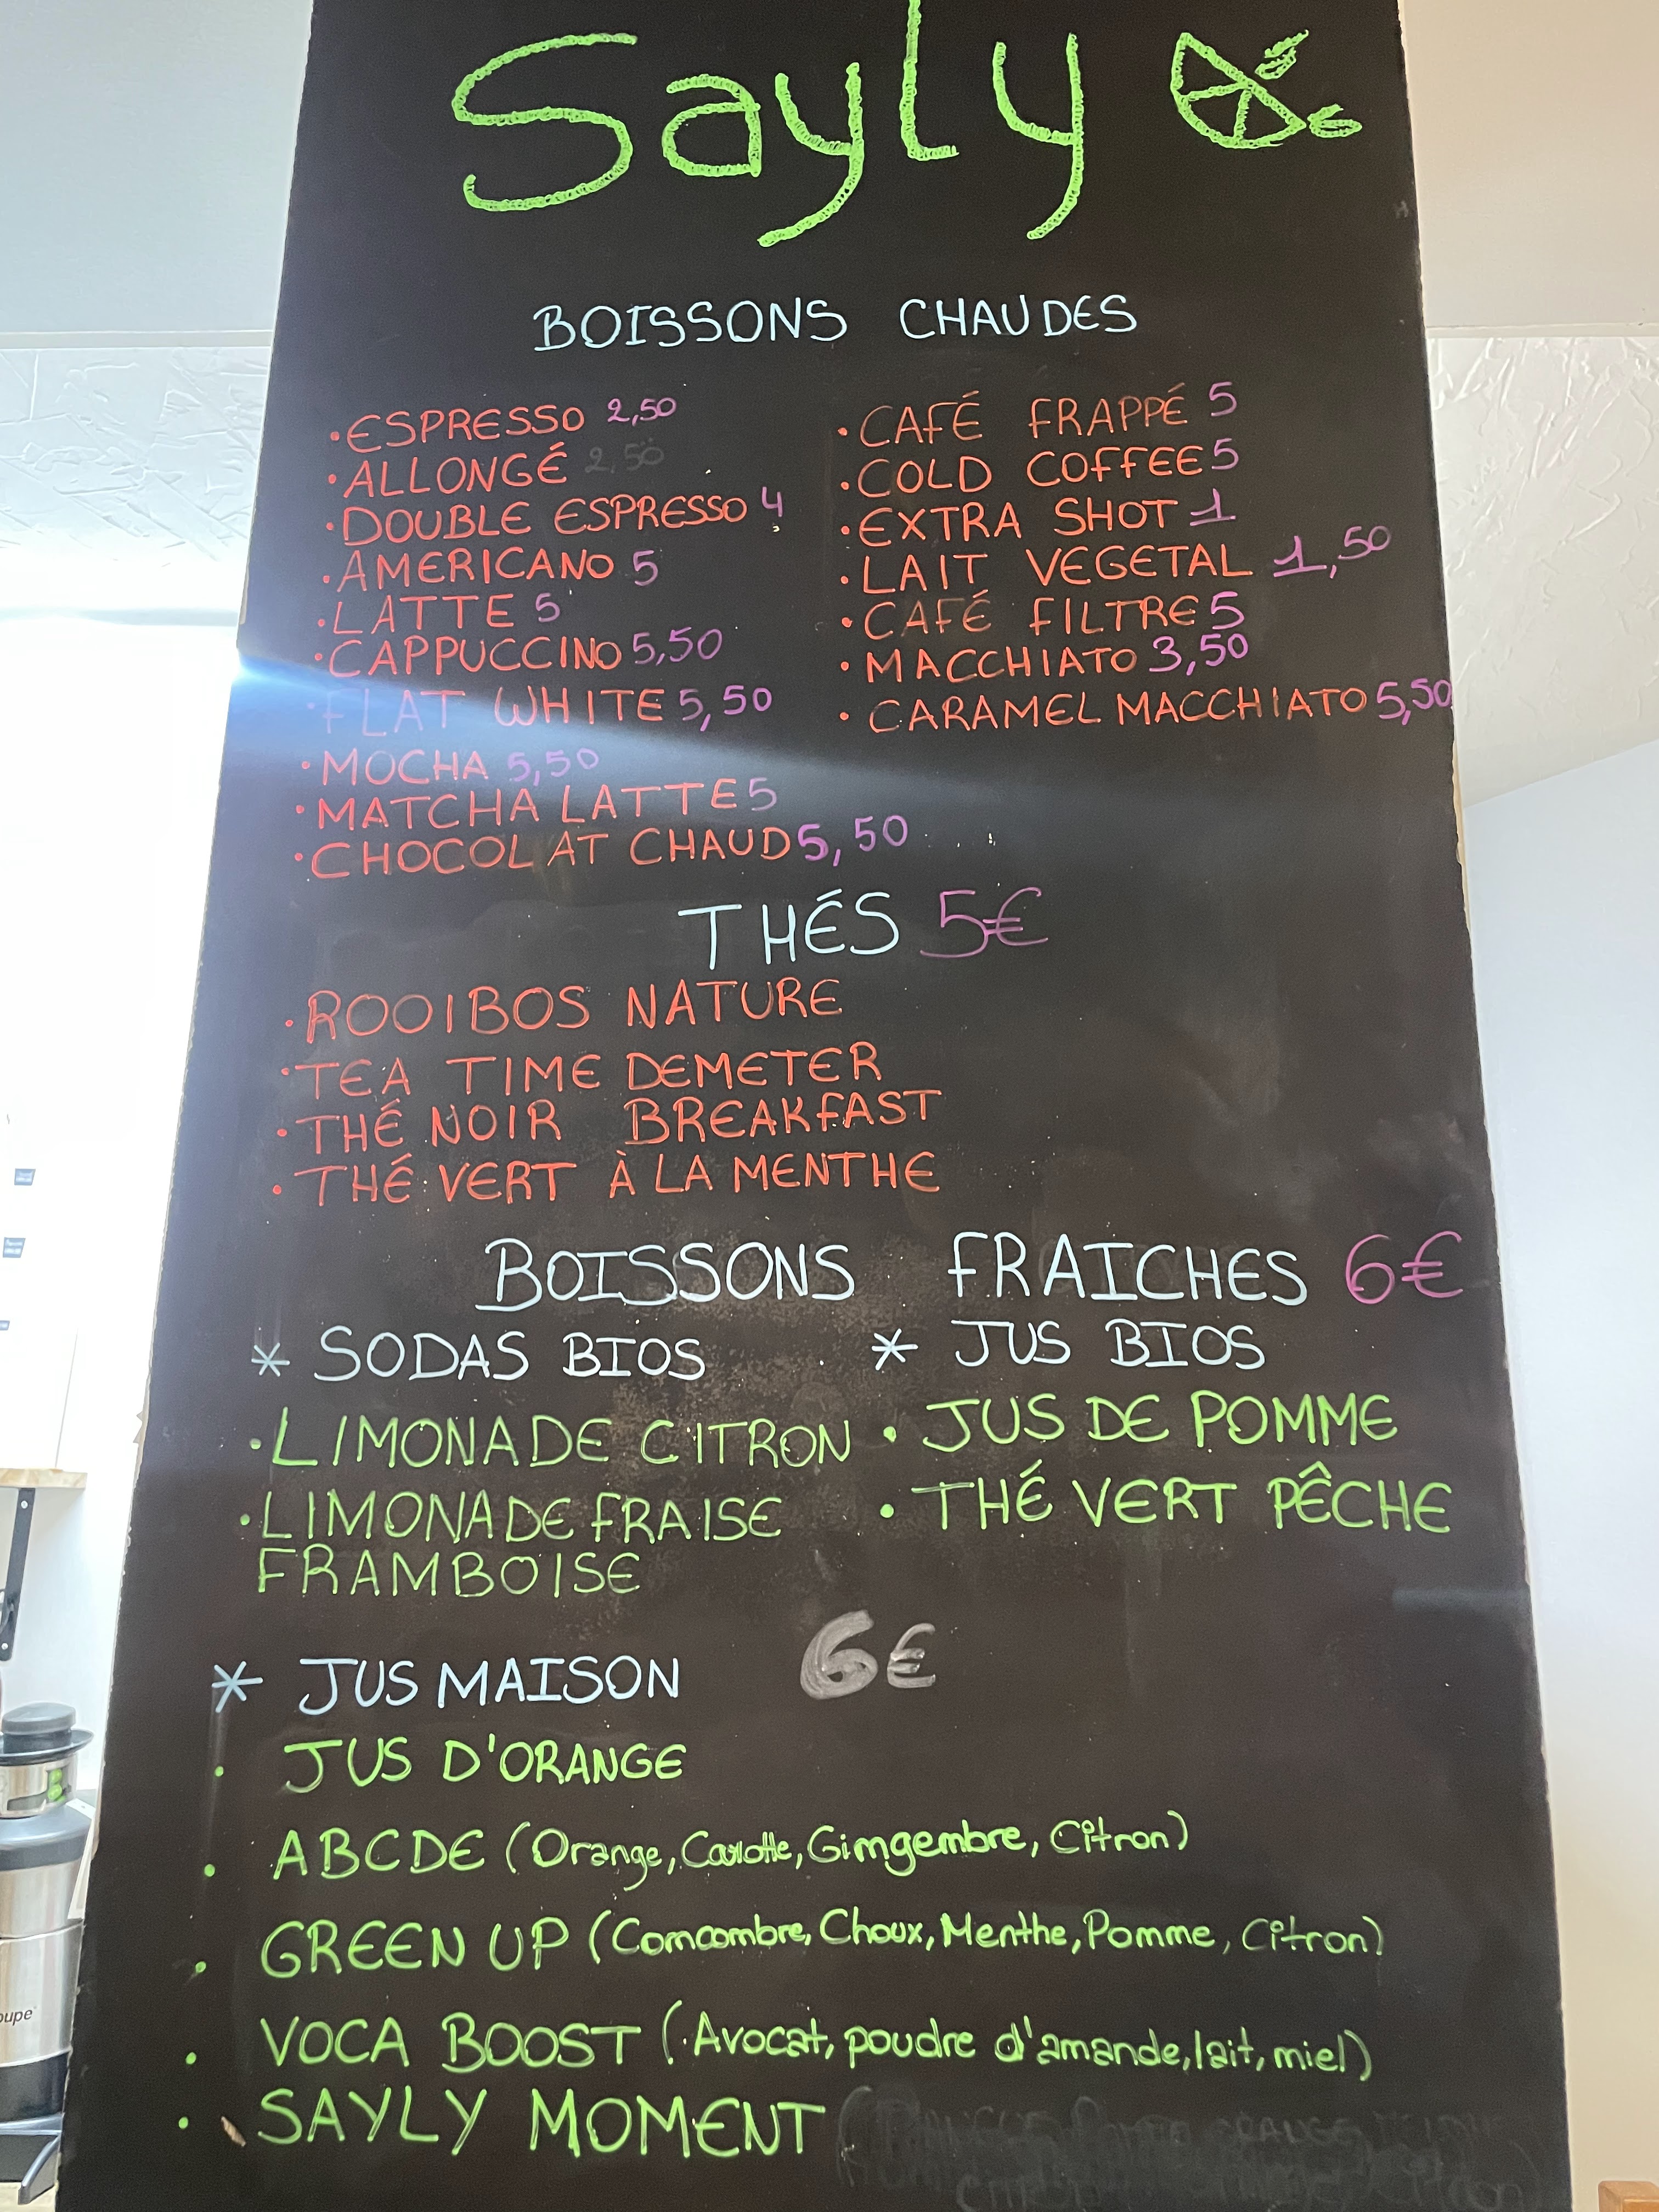 Sayly
BOISSONS CHAUDES
• ESPRESSO 2,50
• ALLONGÉ 2,50
• DOUBLE ESPRESSO 4
• AMERICANO 5
• LATTE 5
• CAPPUCCINO 5,50
• FLAT WHITE 5,50
• MOCHA 5,50
• MATCHA LATTE 5
• CHOCOLAT CHAUD 5,50
• CAFÉ FRAPPÉ 5
• COLD COFFEE 5
• EXTRA SHOT 1
• LAIT VEGETAL 1,50
• CAFÉ FILTRE 5
• MACCHIATO 3,50
• CARAMEL MACCHIATO 5,50
THÉS 5€
• ROOIBOS NATURE
• TEA TIME DEMETER
• THÉ NOIR BREAKFAST
• THÉ VERT À LA MENTHE
BOISSONS FRAICHES 6€
* SODAS BIOS
• LIMONADE CITRON
• LIMONADE FRAISE
FRAMBOISE
* JUS BIOS
• JUS DE POMME
• THÉ VERT PÊCHE
* JUS MAISON 6€
• JUS D'ORANGE
• ABCDE (Orange, Carotte, Gimgembre, Citron)
• GREEN UP (Comcombre, Choux, Menthe, Pomme, Citron)
• VOCA BOOST (Avocat, poudre d'amande, lait, miel)
• SAYLY MOMENT